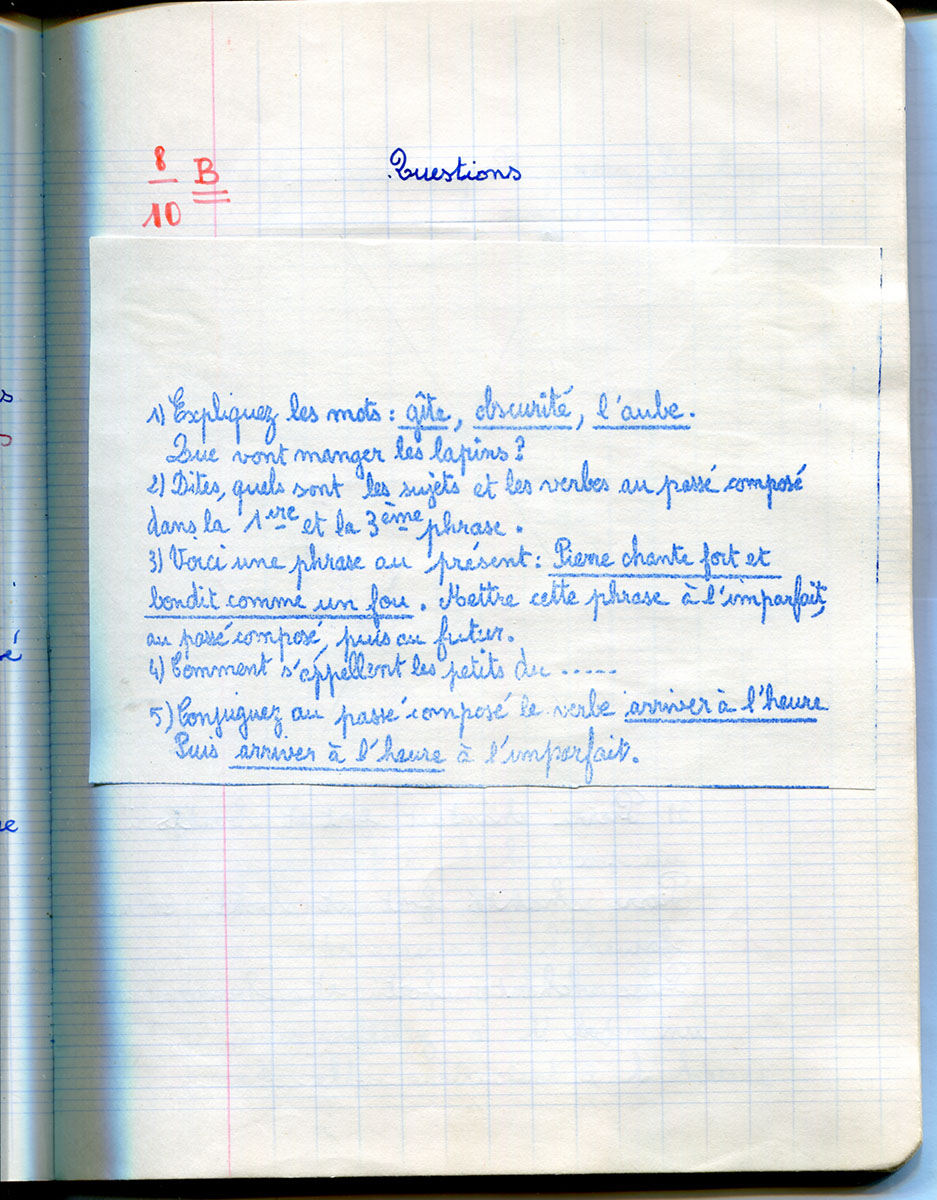 8
10
B
Questions
1) Expliquez les mots : gîte, obscurité, l'aube.
Que vont manger les lapins ?
2) Dites, quels sont les sujets et les verbes au passé composé
dans la 1ère et la 3ème phrase.
3) Voici une phrase au présent : Pierre chante fort et
bondit comme un fou. Mettre cette phrase à l'imparfait,
au passé composé, puis au futur.
4) Comment s'appellent les petits du .....
5) Conjuguez au passé composé le verbe arriver à l'heure
Puis arriver à l'heure à l'imparfait.